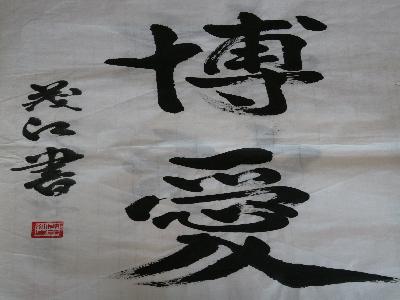 博愛
茂江書